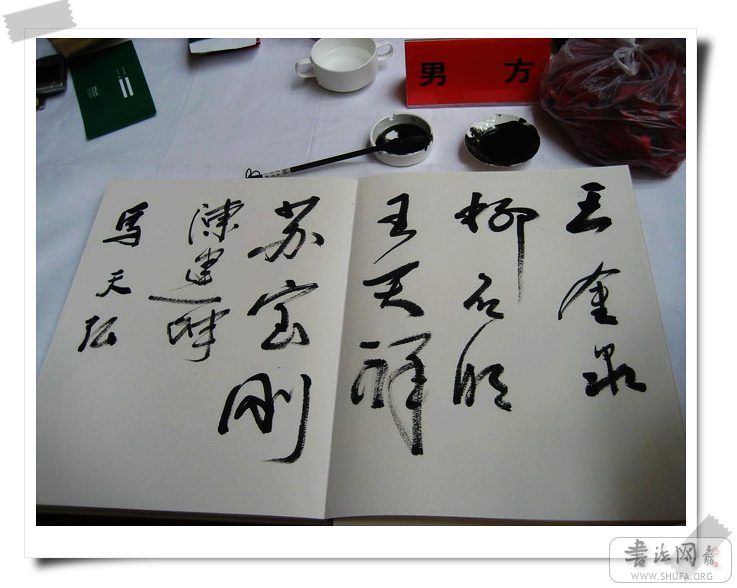 男方
王金泉
柳石明
王天祥
苏宝刚
陈建坤
马天弘
书法网
WWW.SHUFA.ORG